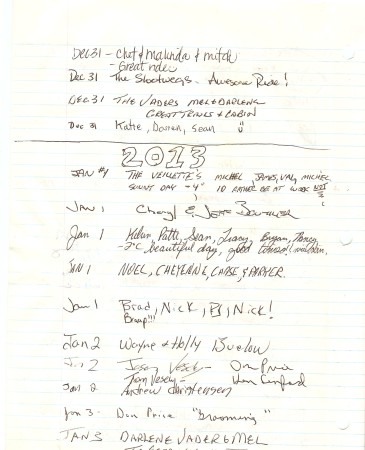 Dec 31 - Chet & Malinda & mitch
- Great rides
Dec 31 The Slootwegs - Awesome Ride!
DEC 31 THE VADERS MEL & DARLENE
GREAT TRAILS & CABIN
Dec 31 Katie, Darren, Sean
2013
JAN #1 THE VEILLETTE'S MICHEL JAMES, VAL, MICHEL
SUNNY DAY -4° I'D RATHER BE AT WORK NOT
JAN 1 Cheryl & JEFF
Jan 1 Patti, Sean, Tracy, Bryan, Tracey
-2°C beautiful day, good
JAN 1 NOEL, CHEYENNE, CHASE, & PARKER.
Jan 1 Brad, Nick, PJ, Nick!
Braap!!!
Jan 2 Wayne & Holly Buelow
Jan 2 Jason Vesey - Don Price
Vesey -
Jan 2 Andrew Christensen
Jan 3 - Don Price "Grooming"
JAN 3 DARLENE VADER & MEL